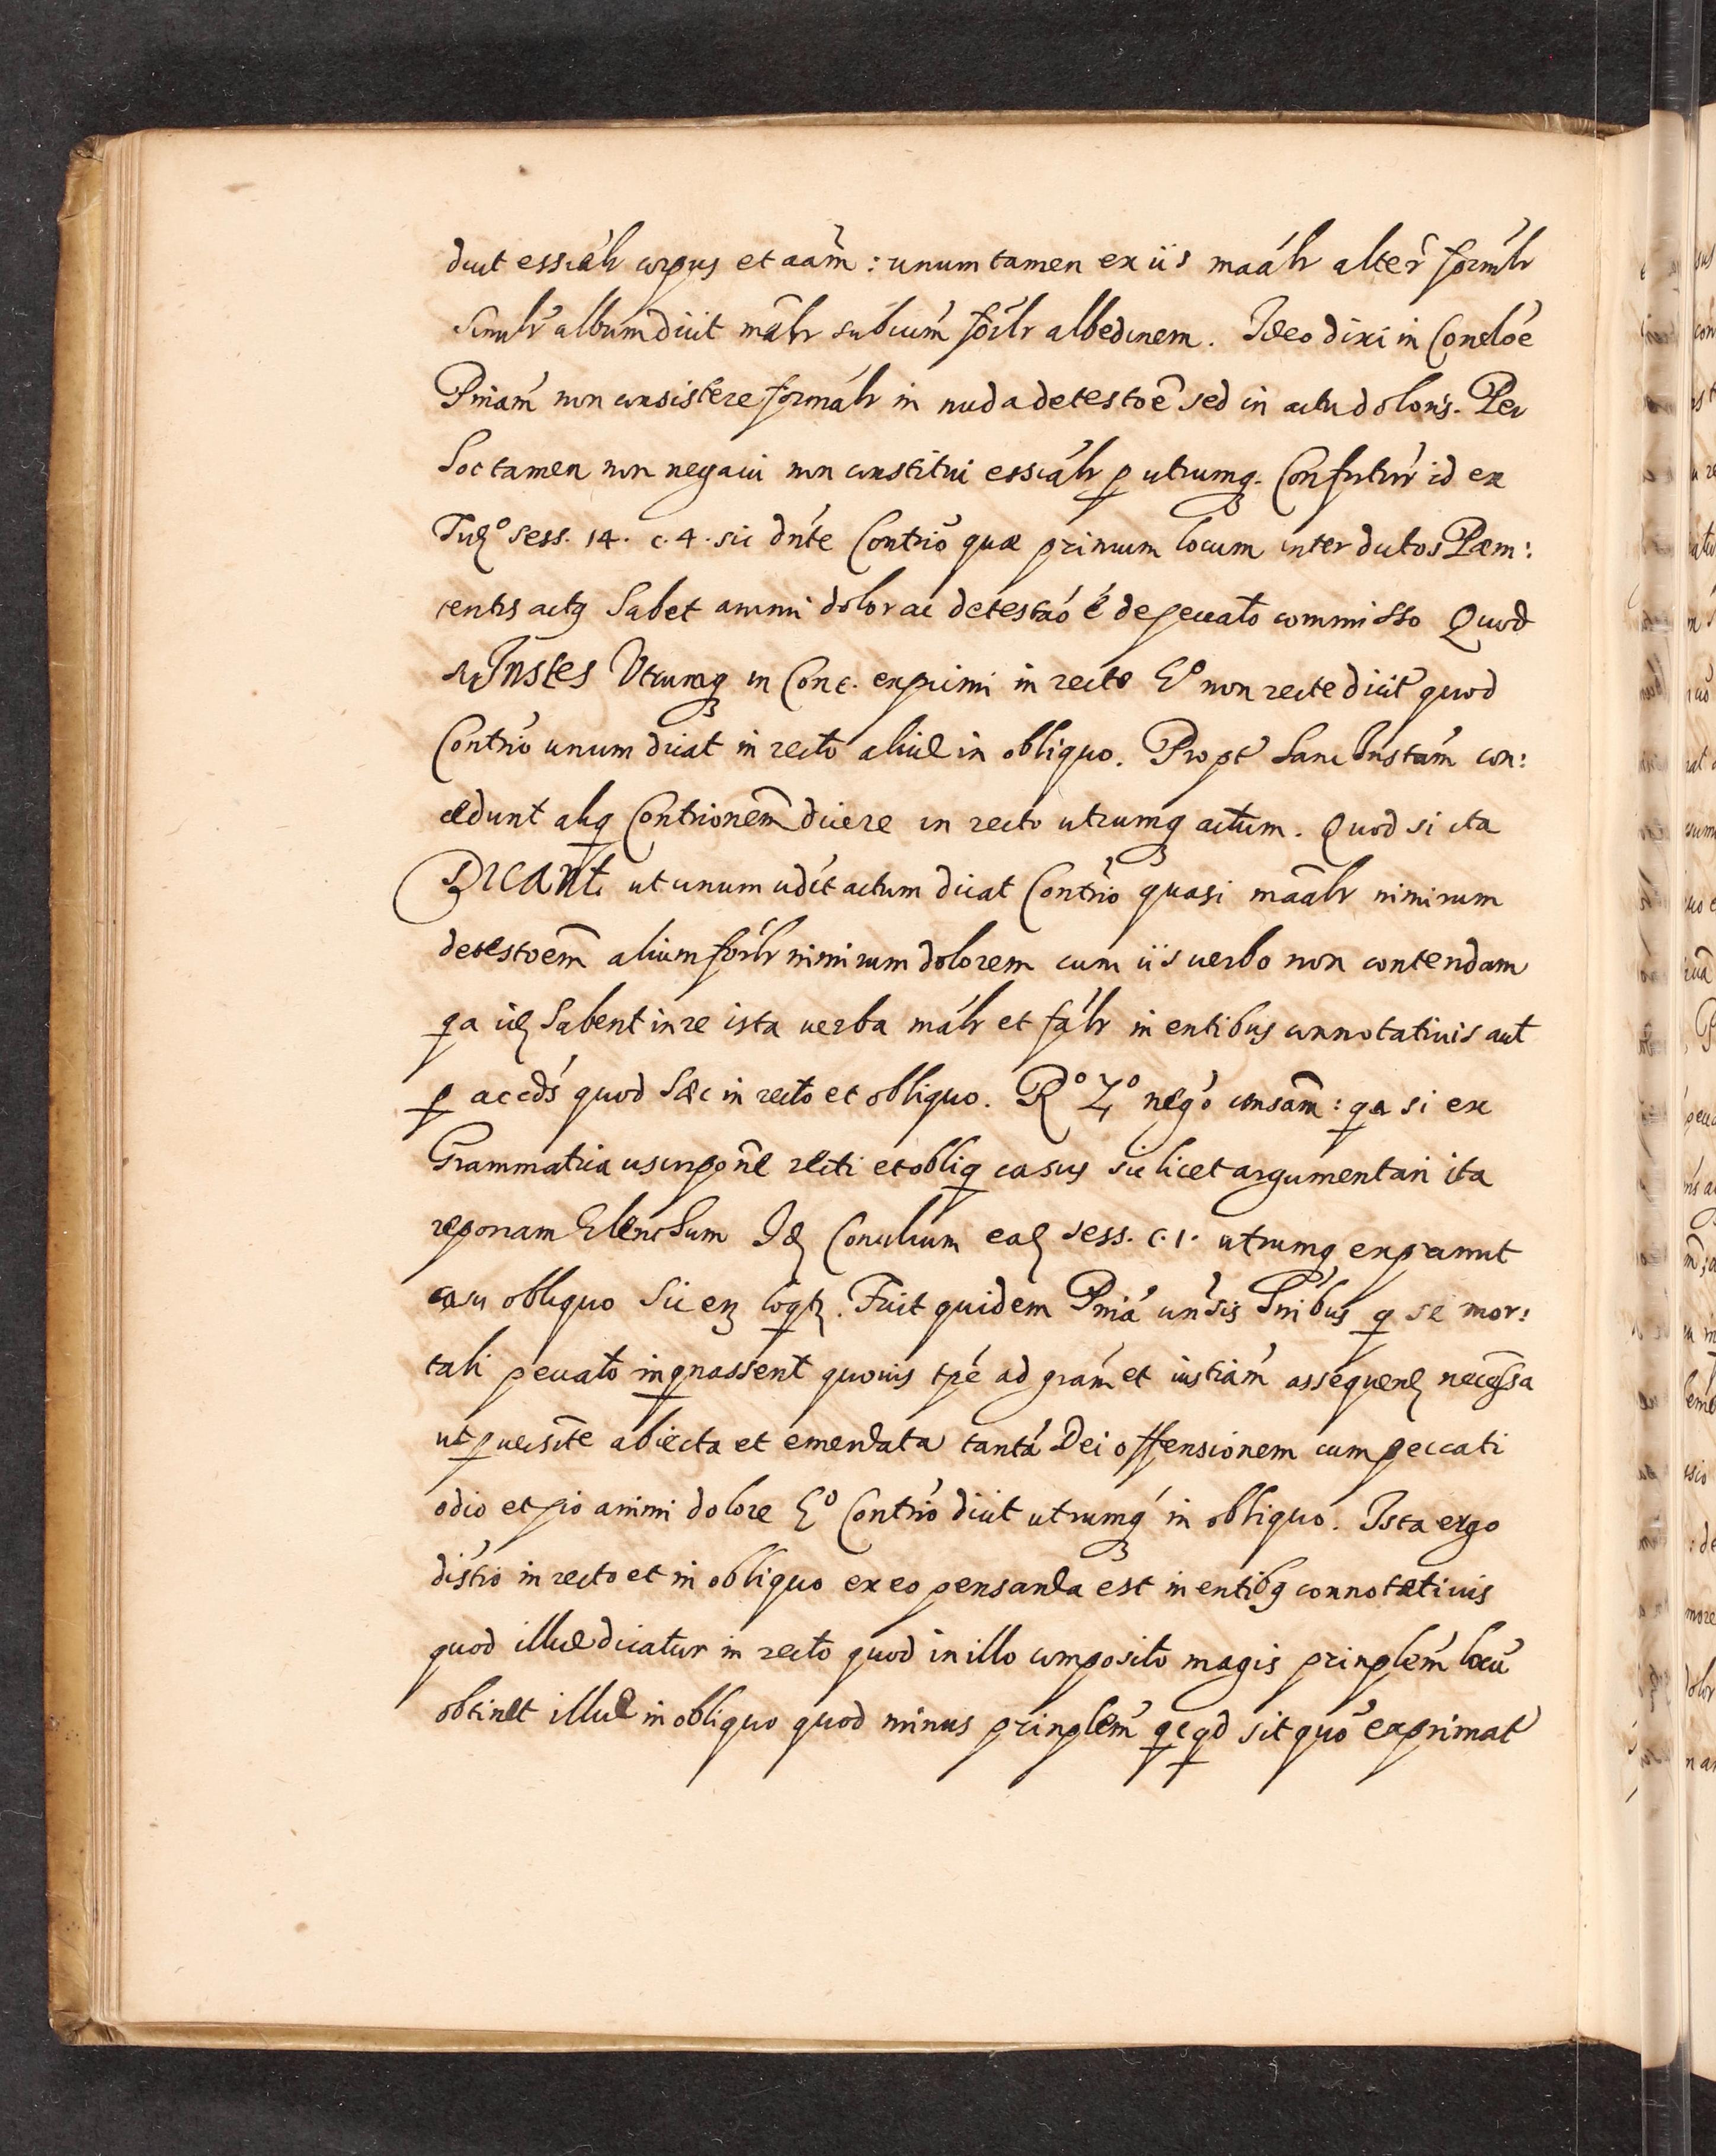 dicit essiālr corpus et aām : unum tamen ex iis maālr alter̃ formlr
Similr album dicit mālr subium fōrlr albedinem. Ideo dixi in Concloe
Pniam non consistere formālr in nuda detestoē sed in actu doloris. Per
hoc tamen non negavi non constitui essiālr p utrumq. Confirtur id ex
Trido sess. 14. c. 4. sic dnte Contrio quae primum locum inter dictos Pæni:
tentis actq habet animi dolor ac detestao ē de peccato commisso Quod
si Instes Utrumq in Conc. exprimi in recto Eo non recte dicit quod
Contrio unum dicat in recto aliud in obliquo. Propt hanc Instam con:
cedunt aliq Contrionem dicere in recto utrumq actum. Quod si ita
Dicant ut unum udet actum dicat Contrio quasi maālr nimirum
detestoem alium forlr nimirum dolorem cum iis verbo non contendam
qa id habent in re ista verba mālr et fālr in entibus connotativis aut
p accds quod hæc in recto et obliquo. Ro 2o nego consam : qa si ex
Grammatica usurpone recti et obliq casus sic licet argumentari ita
reponam Elenchum Id Concilium ead sess. c. 1. utrumq expamit
casu obliquo Sic en loqtr. Fuit quidem Pnia unsis hnibus q se mor:
tali peccato inqnassent quovis tpe ad gram et iustiam assequend necessa
ut pversite abiecta et emendata tanta Dei offensionem cum peccati
odio et pio animi dolore Eo Contrio dicit utrumq in obliquo. Ista ergo
distio in recto et in obliquo ex eo pensanda est in entibq connotativis
quod illud dicatur in recto quod in illo composito magis prinplem locū
obtinet illud in obliquo quod minus prinplem qcqd sit quo exprimat